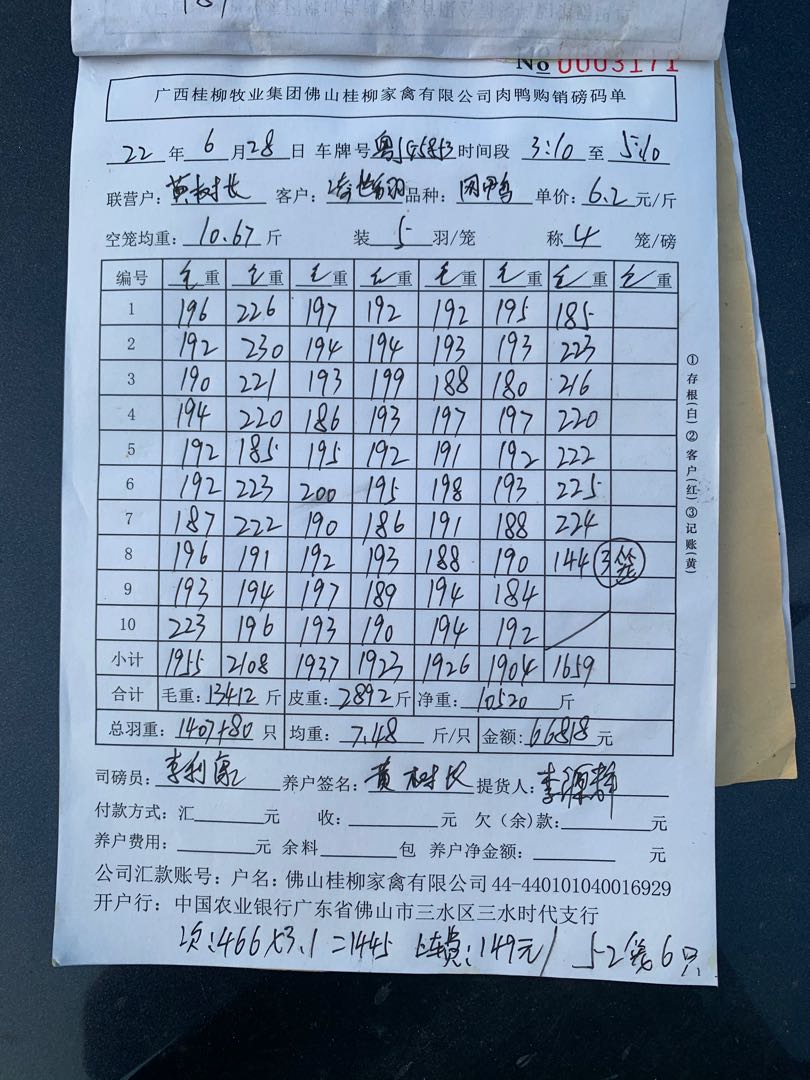 No 0003171
广西桂柳牧业集团佛山桂柳家禽有限公司肉鸭购销磅码单
22 年 6 月 28 日 车牌号 粤J45853 时间段 3:10 至 5:10
联营户: 黄树长 客户: 品种: 肉鸭 单价: 6.2 元/斤
空笼均重: 10.67 斤 装 5 羽/笼 称 4 笼/磅
编号 毛重 毛重 毛重 毛重 毛重 毛重 毛重 毛重
1 196 226 197 192 192 195 185
2 192 230 194 194 193 193 223
3 190 221 193 199 188 180 216
4 194 220 186 193 197 197 220
5 192 185 195 192 191 192 222
6 192 223 200 195 198 193 225
7 187 222 190 186 191 188 224
8 196 191 192 193 188 190 144 3笼
9 193 194 197 189 194 184
10 223 196 193 190 194 192
小计 1955 2108 1937 1923 1926 1904 1659
合计 毛重: 13412 斤 皮重: 2892 斤 净重: 10520 斤
总羽重: 1407+80 只 均重: 7.48 斤/只 金额: 66818 元
司磅员: 李利 养户签名: 黄树长 提货人: 李源
付款方式: 汇 元 收: 元 欠(余)款: 元
养户费用: 元 余料 包 养户净金额: 元
公司汇款账号: 户名: 佛山桂柳家禽有限公司 44-440101040016929
开户行: 中国农业银行广东省佛山市三水区三水时代支行
次:466×3.1=1445 上车费:149元/ 5-2笼6只
①存根(白)②客户(红)③记账(黄)